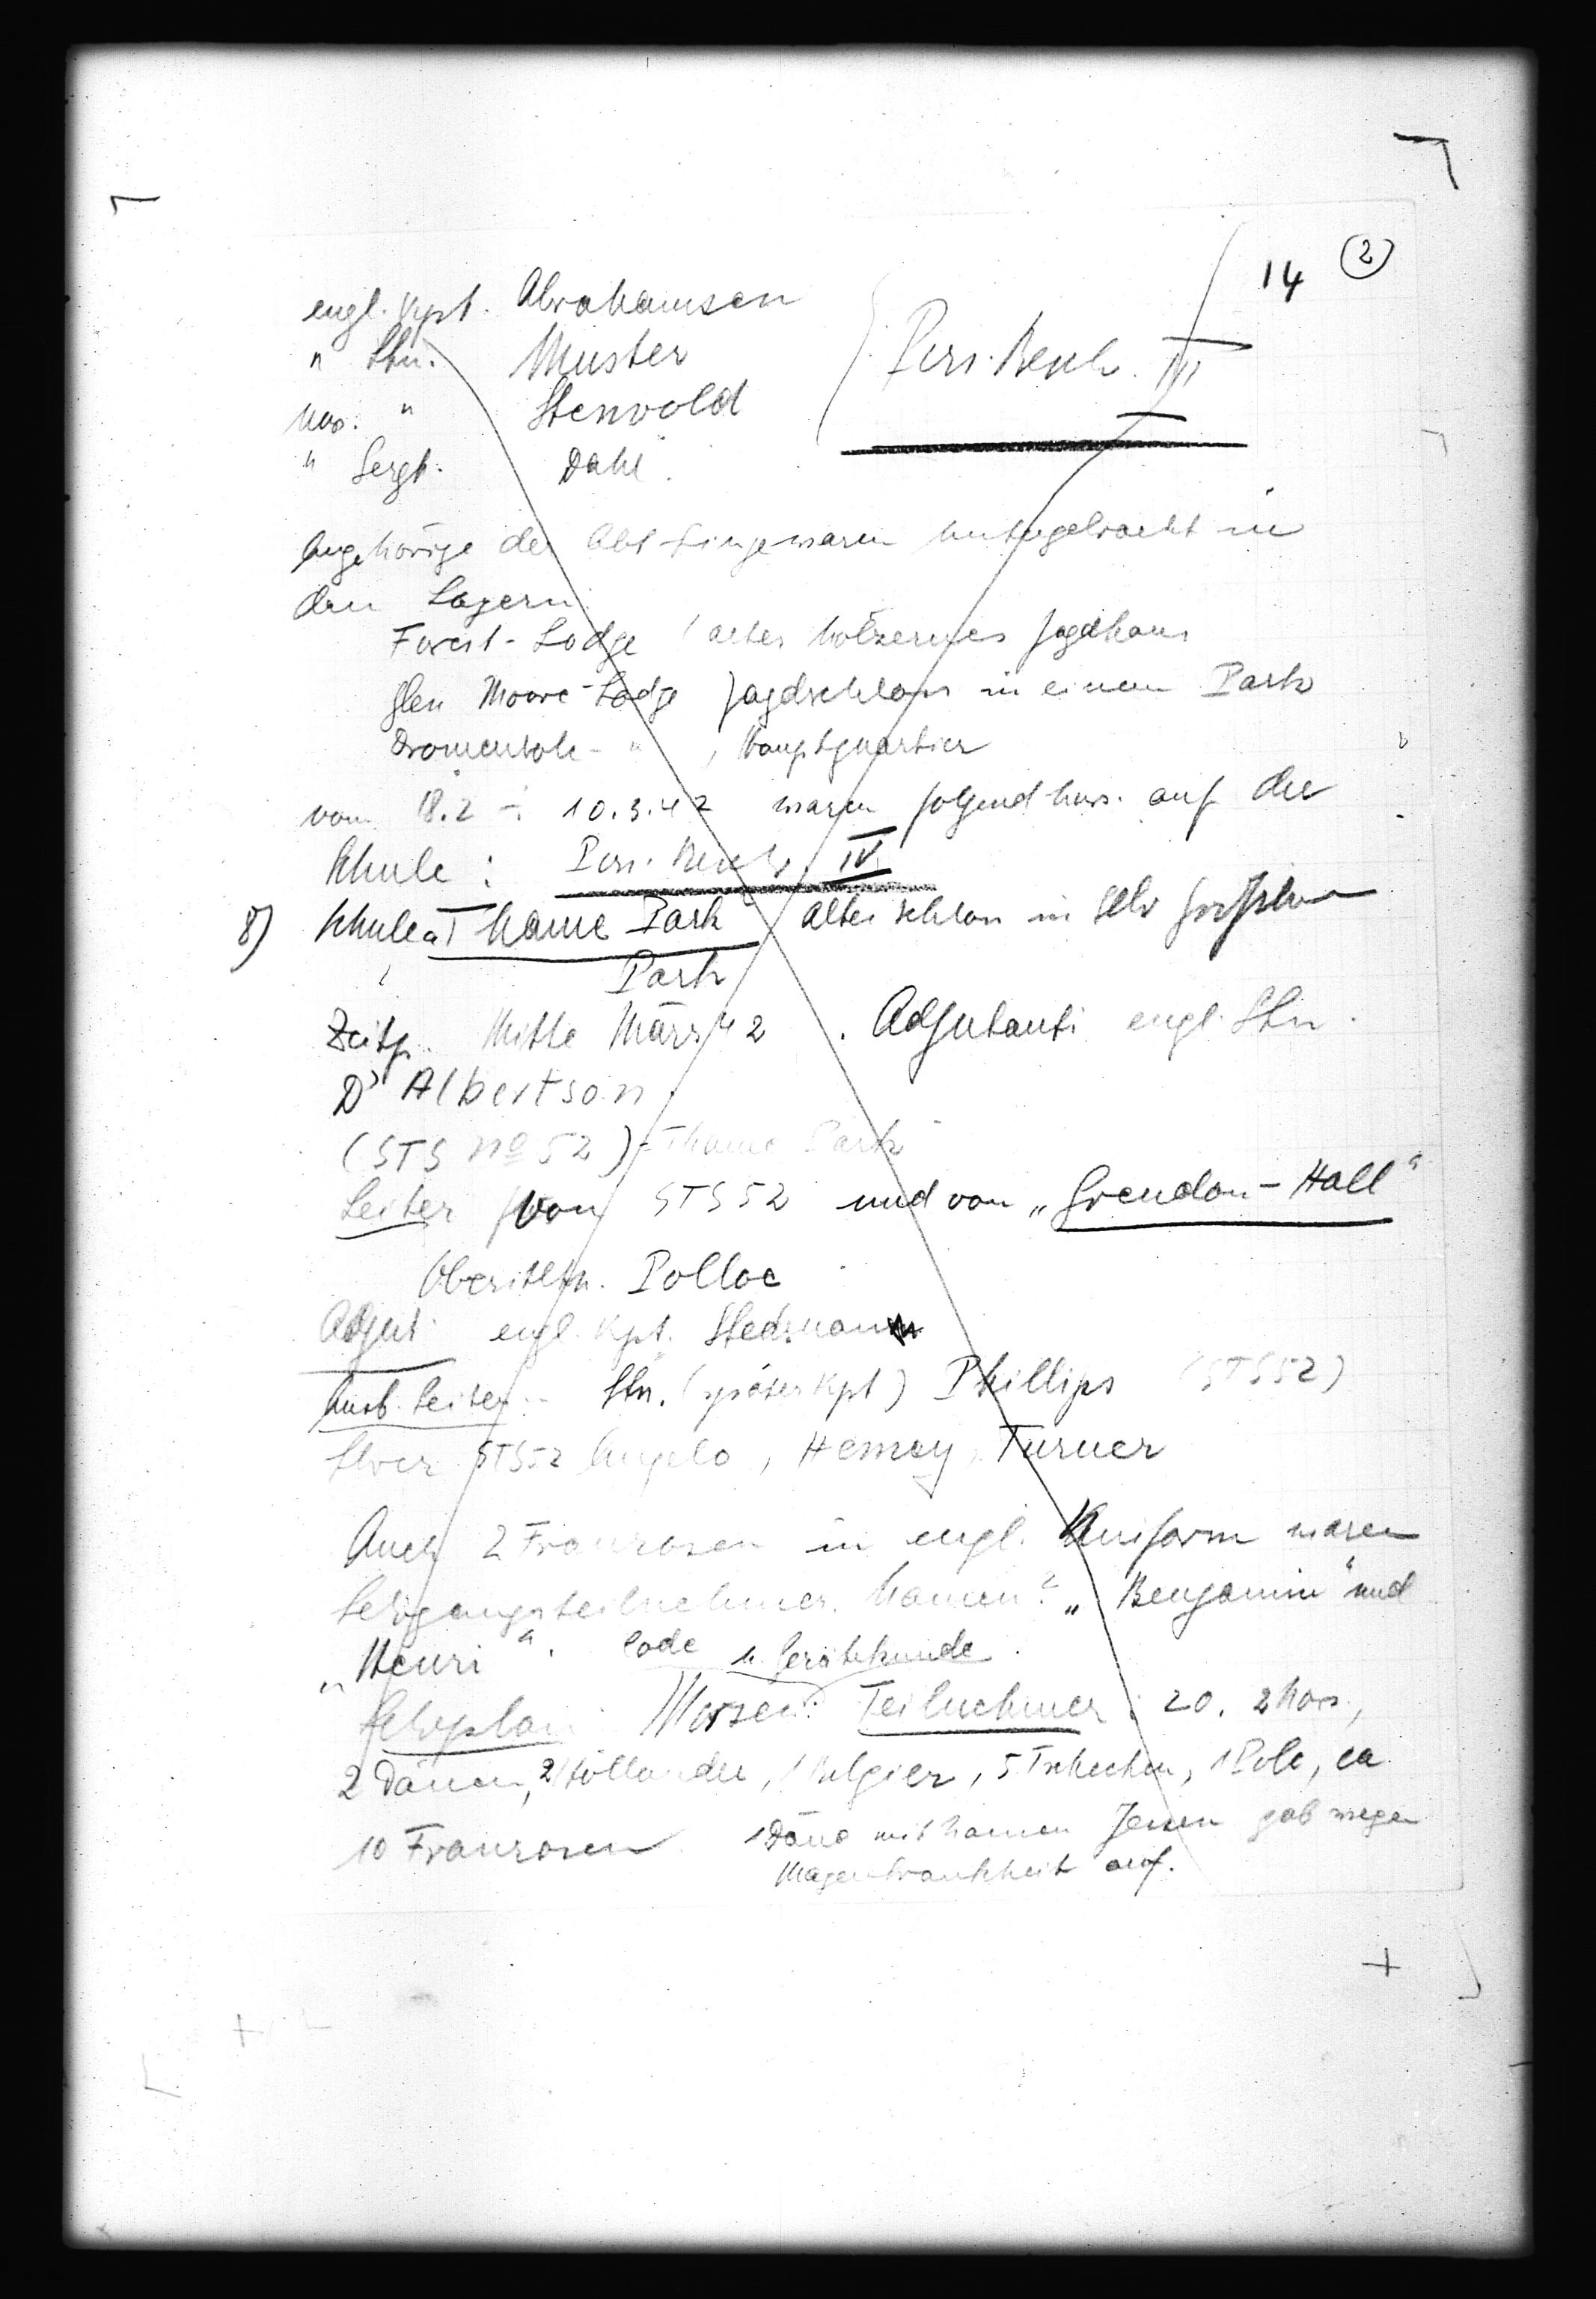 14 (2)
engl. Kpt. Abrahamsen
" Ltn. Munster
nor. " Stenvold
" Sergt. Dahl
Pers. Besch. III
Angehörige der Abt Linge waren untergebracht in
den Lagern:
Forest-Lodge altes hölzernes Jagdhaus
Glen Moore-Lodge Jagdschloss in einem Park
Dromentole- " , Hauptquartier
vom 18.2 ÷ 10.3.42 waren folgend nor. auf der
Schule: Pers. Besch. IV
8) Schule "Thame Park" altes Schloss in sehr grossem
Park
Zeitp. Mitte März 42. Adjutant: engl. Ltn.
D'Albertson
(STS No 52) "Thame Park"
Leiter von STS 52 und von „Grendon-Hall"
Oberstltn. Polloc
Adjut. engl. Kpt. Stedman
Ausb. Leiter Ltn. (später Kpt) Phillips (STS52)
STS52 Angelo, Hemey, Turner
Auch 2 Franzosen in engl. Uniform waren
Lehrgangsteilnehmer. Namen? „Benjamin" und
„Henri". Code u. Gerätekunde.
Lehrplan: Morsen. Teilnehmer: 20. 2 Nor.,
2 Dänen, 2 Holländer, 1 Belgier, 5 Tschechen, 1 Pole, ca
10 Franzosen 1 Däne mit Namen Jensen gab wegen
Magenkrankheit auf.